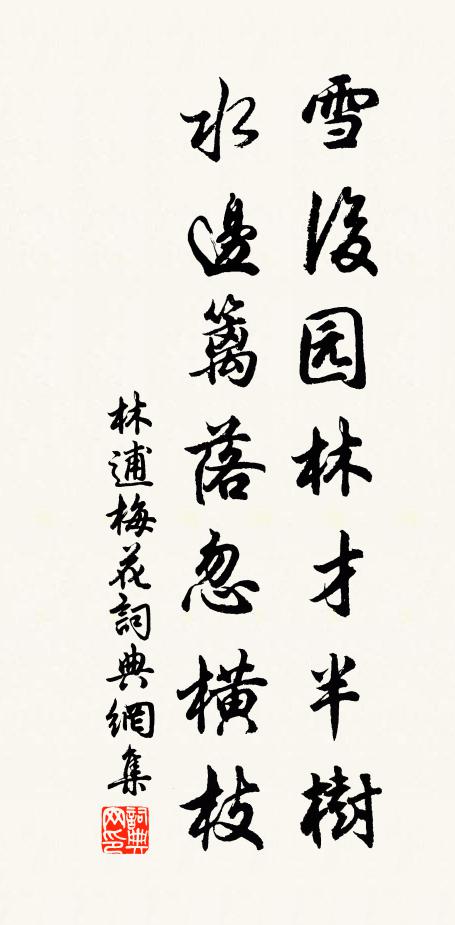 雪後园林才半樹
水邊籬落忽橫枝
林逋梅花詞典網集
詞典网印